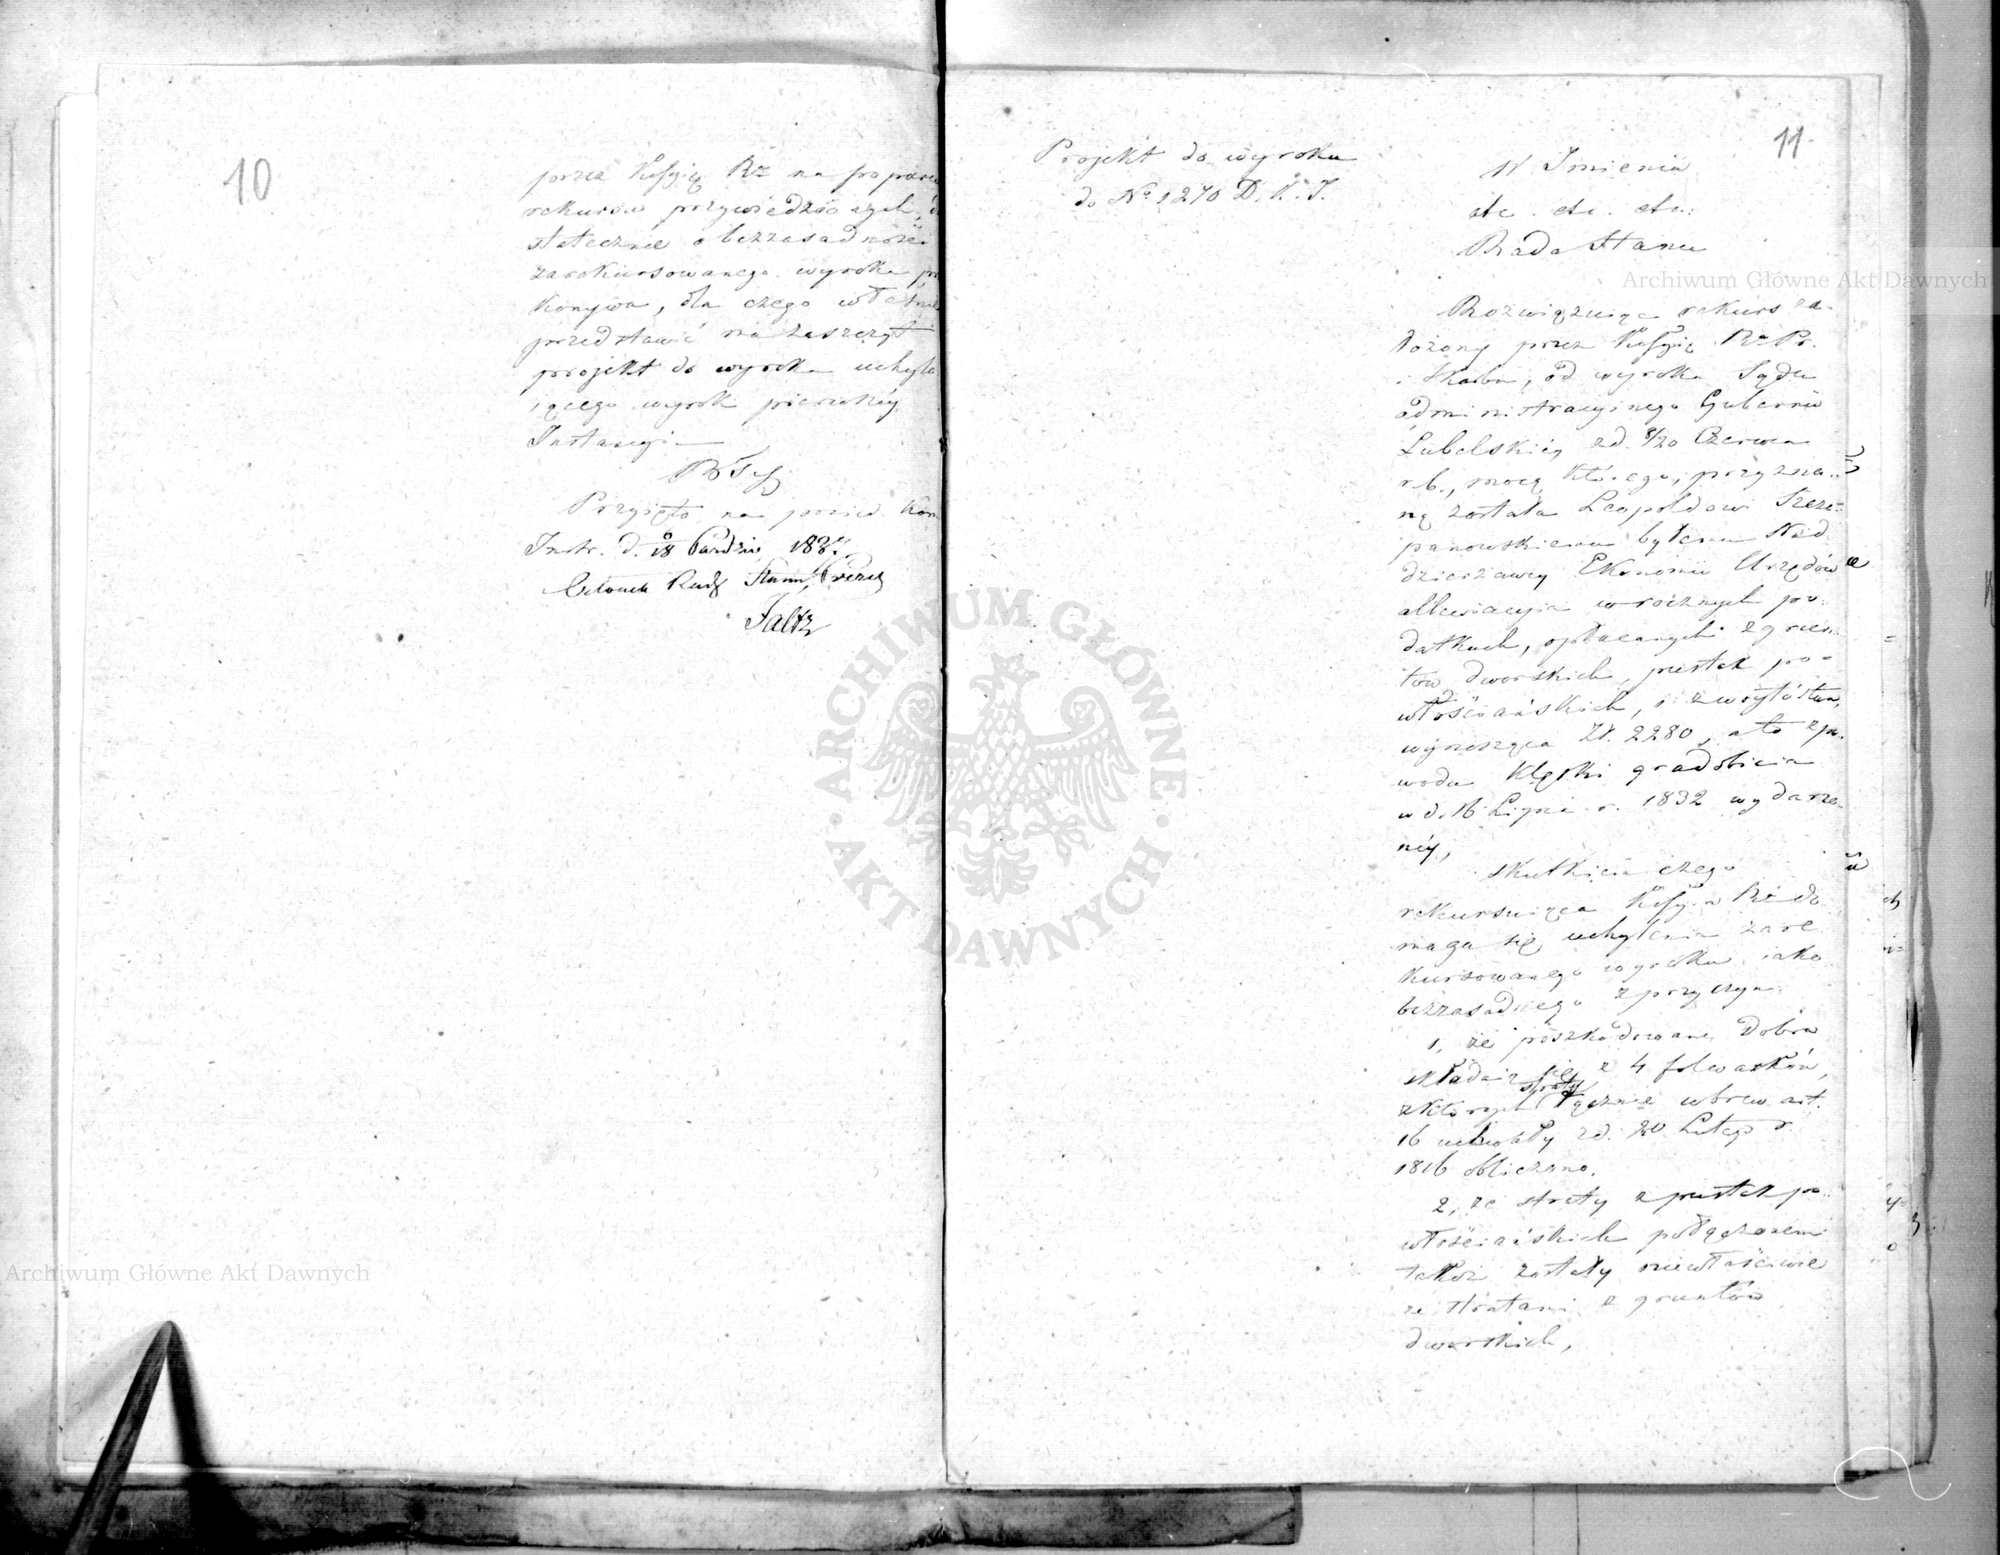 10
przez Kosyią Rz. na poparcie
rekursu przywiedzionych, do
statecznie o bezzasadności
zarekursowanego wyroku prze
konywa, dla czego właśnie
przedstawić ma zaszczyt
projekt do wyroku uchyla
iącego wyrok pierwszéy
Instancyi
Przyięto na posied. Kom
Instr. d. 6/18 Paździer.
Członek Rady Stanu, Prezes
Faltz
11.
Projekt do wyroku
do No 1270 D. K. I.
W Imieniu
etc. etc. etc.
Rada Stanu
Rozwiązuiąc rekurs za-
łożony przez Rz. Pr.
i Skarbu, od wyroku Sądu
administracyinego Gubernii
Lubelskiéy z d. 8/20 Czerwca
r. b., mocą którego, przyzna-
ną została Leopoldowi Szcze-
panowskiemu byłemu Nad
dzierżawcy Ekonomii Urzędów
allewiacyia w rocznych po-
datkach, opłacanych z grun-
tów dworskich, pustek po-
włościańskich, i
wynosząca Zł. 2280, a to z po-
wodu klęski gradobicia
w d. 16 Lipca r. 1832 wydarzo-
néy,
skutkiem czego
rekursuiąca Rz. do
maga się uchylenia zare
kursowanego wyroku iako
bezzasadnego z przyczyn:
1, że poszkodowane Dobra
składaią się z 4 folwarków,
z których straty łącznie wbrew art.
16 uchwały z d. 20 Lutego r.
1816 obliczono.
2, że straty z pustek po-
włościańskich połączonemi
także zostały niewłaściwie
ze stratami z gruntów
dworskich,
Archiwum Główne Akt Dawnych
Archiwum Główne Akt Dawnych
ARCHIWUM GŁÓWNE
AKT DAWNYCH